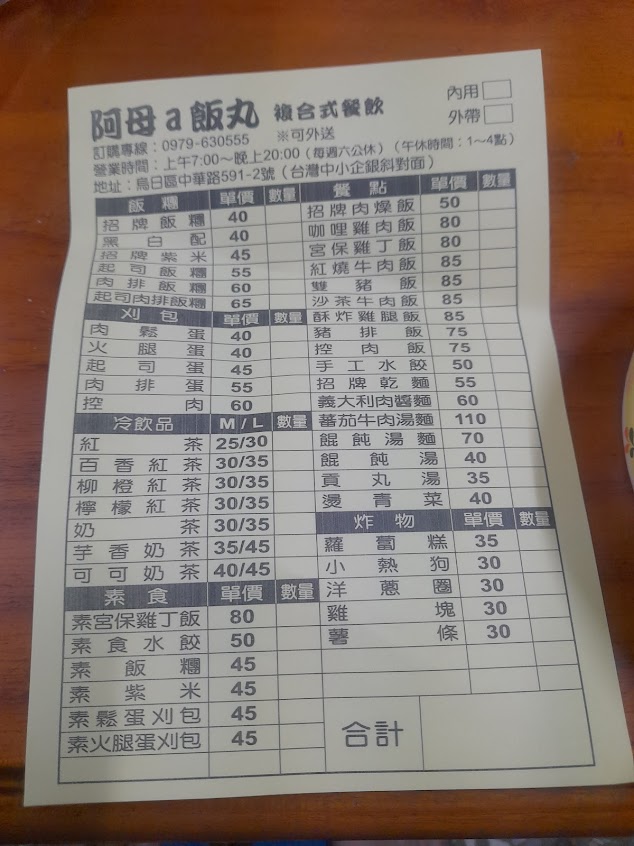 阿母a飯丸 複合式餐飲
內用
外帶
訂購專線：0979-630555 ※可外送
營業時間：上午7:00～晚上20:00（每週六公休）（午休時間：1～4點）
地址：烏日區中華路591-2號（台灣中小企銀斜對面）
飯糰 單價 數量
招牌飯糰 40
黑白配 40
招牌紫米 45
起司飯糰 55
肉排飯糰 60
起司肉排飯糰 65
刈包 單價 數量
肉鬆蛋 40
火腿蛋 40
起司蛋 45
肉排蛋 55
控肉 60
冷飲品 M/L 數量
紅茶 25/30
百香紅茶 30/35
柳橙紅茶 30/35
檸檬紅茶 30/35
奶茶 30/35
芋香奶茶 35/45
可可奶茶 40/45
素食 單價 數量
素宮保雞丁飯 80
素食水餃 50
素飯糰 45
素紫米 45
素鬆蛋刈包 45
素火腿蛋刈包 45
餐點 單價 數量
招牌肉燥飯 50
咖哩雞肉飯 80
宮保雞丁飯 80
紅燒牛肉飯 85
雙豬飯 85
沙茶牛肉飯 85
酥炸雞腿飯 85
豬排飯 75
控肉飯 75
手工水餃 50
招牌乾麵 55
義大利肉醬麵 60
蕃茄牛肉湯麵 110
餛飩湯麵 70
餛飩湯 40
貢丸湯 35
燙青菜 40
炸物 單價 數量
蘿蔔糕 35
小熱狗 30
洋蔥圈 30
雞塊 30
薯條 30
合計